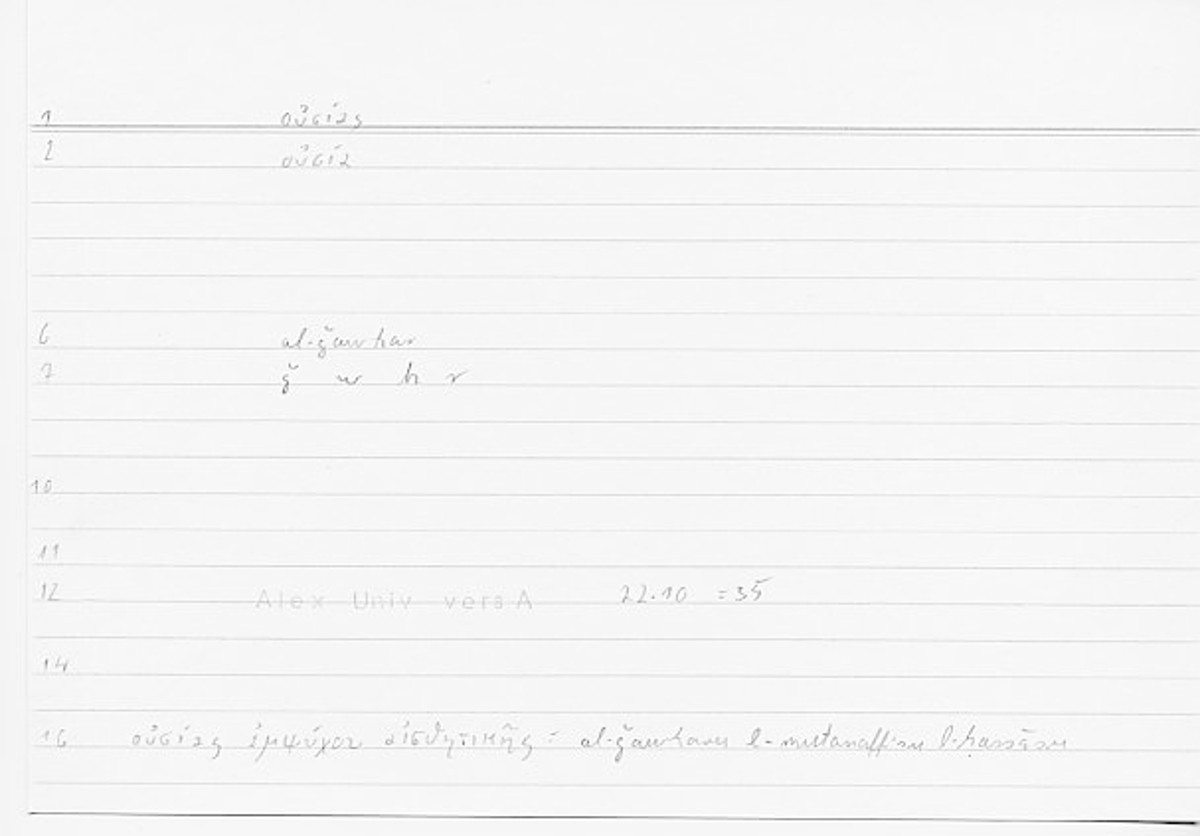 1 οὐσίας
2 οὐσία
6 al-ǧawhar
7 ǧ w h r
10
11
12 Alex Univ vers A 22.10 = 35
14
16 οὐσίας ἐμψύχου αἰσθητικῆς = al-ǧawharu l-mutanaffisu l-ḥassāsu